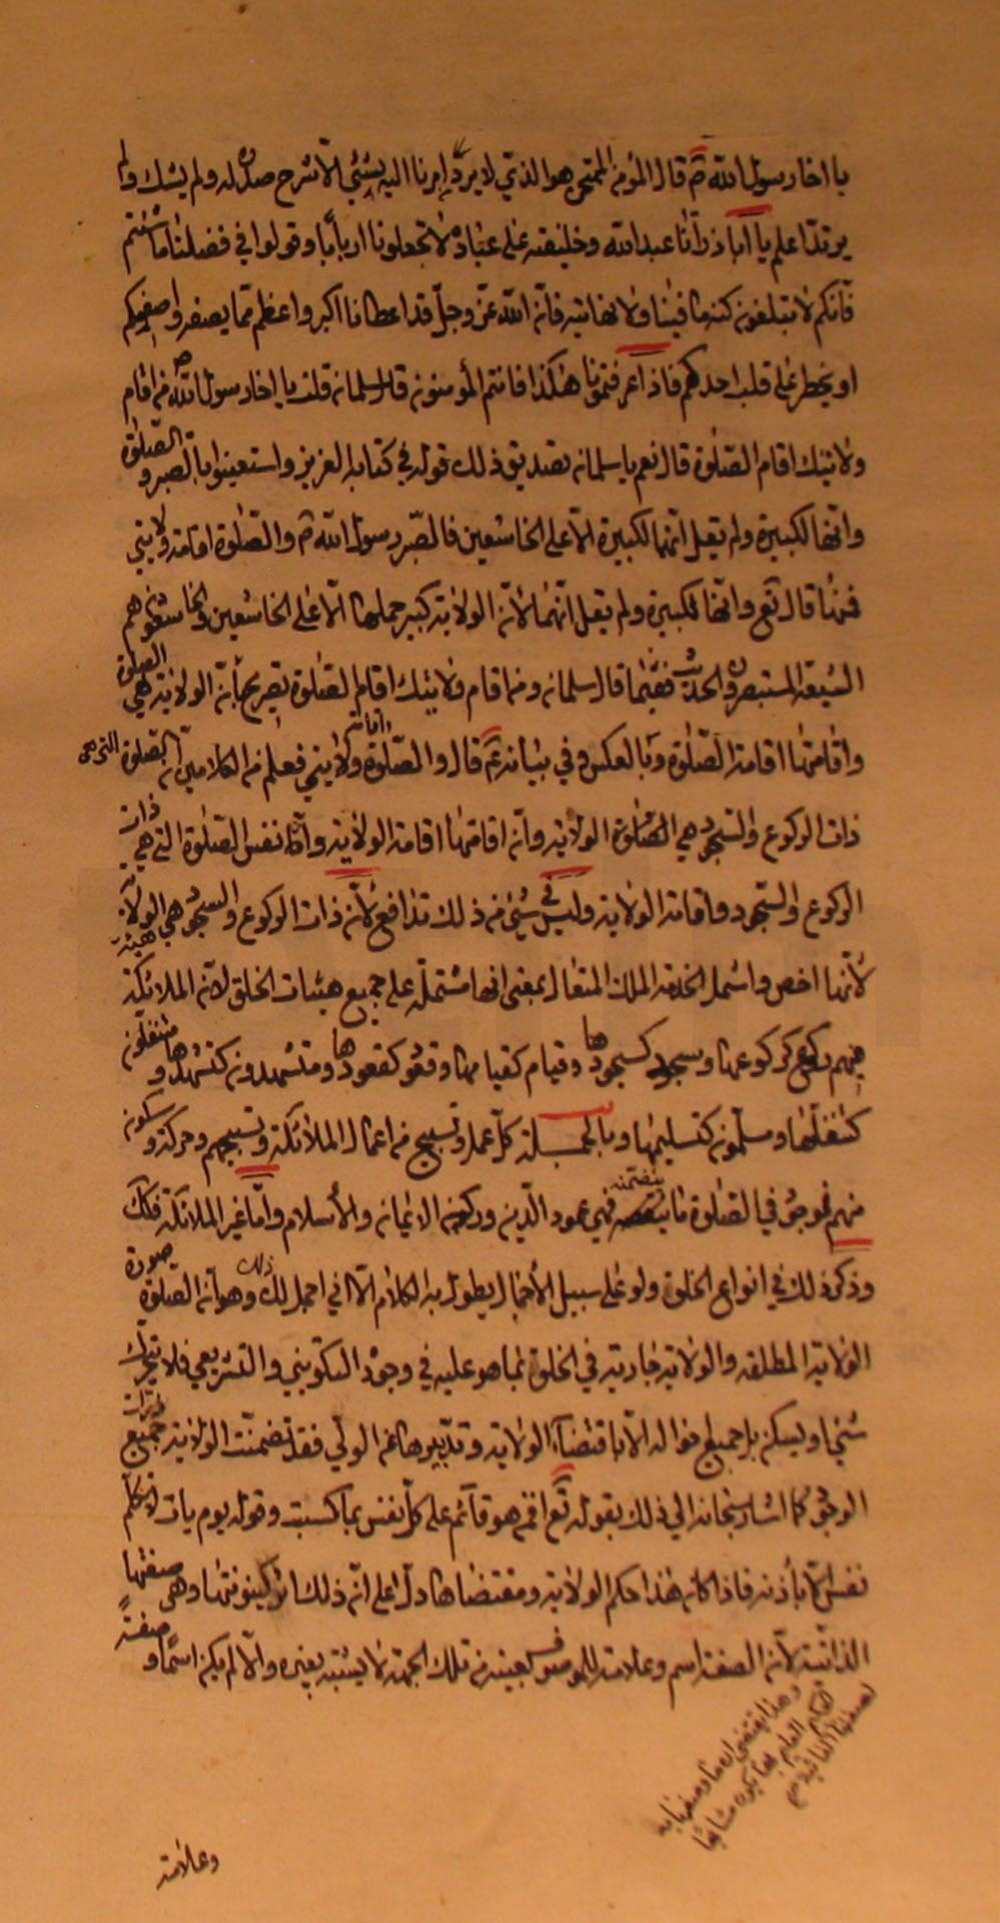 يا اخا رسول الله ص قال المؤمن الممتحن هو الذي لا يرد من امرنا اليه بشئ الا شرح صدره له ولم يشك ولم
يرتد اعلم يا ابا ذر انا عبد الله وخليفته على عباده لا تجعلونا اربابا وقولوا في فضلنا ما شئتم
فانكم لا تبلغون كنه ما فينا ولا نهايته فان الله عز وجل قد اعطانا اكبر واعظم مما يصفه واصفكم
او يخطر على قلب احدكم فاذا عرفتمونا هكذا فانتم المؤمنون قال سلمان قلت يا اخا رسول الله ص من اقام
ولايتك اقام الصلوة قال نعم يا سلمان تصديق ذلك قوله في كتابه العزيز واستعينوا بالصبر والصلوة
وانها لكبيرة ولم يقل انهما لكبيرة الا على الخاشعين فالصبر رسول الله ص والصلوة اقامة ولايتي
فمنها قال تع وانها لكبيرة ولم يقل انهما لان الولاية كبير حملها الا على الخاشعين والخاشعون هم
الشيعة المستبصرون الحديث ففيما قال سلمان ومن اقام ولايتك اقام الصلوة تصريح بان الولاية هي الصلوة
واقامتها اقامة الصلوة وبالعكس وفي بيانه ع قال والصلوة اقامة ولايتي فعلم من الكلامين ان الصلوة التي هي
ذات الركوع والسجود هي الصلوة الولاية وان اقامتها اقامة الولاية وانها نفس الصلوة التي هي ذات
الركوع والسجود واقامة الولاية وليس في شئ من ذلك تدافع لان ذات الركوع والسجود هي الولاية
لانها اخص واشمل لخدمة الملك المتعال بمعنى انها مشتملة على جميع هيئات الخلق لان الملائكة هيئة
منهم ركع كركوعها وسجد كسجودها وقيام كقيامها وقعود كقعودها ومتشهدون كتشهدها ومتنفلون
كتنفلها ومسلمون كتسليمها وبالجملة كل عمل وتسبيح من اعمال الملائكة وتسبيحهم وحركة وسكون
منهم فموجود في الصلوة ما يتضمنه فهي عمود الدين وركن الايمان والاسلام واما غير الملائكة فكك
وذكر ذلك في انواع الخلق ولو على سبيل الاجمال يطول به الكلام الا اني اجمل لك ذلك وهو ان الصلوة صورة
الولاية المطلقة والولاية جارية في الخلق بما هو عليه في وجود التكويني والتشريعي فلا يتحرك
شئ او يسكن بل جميع احواله الا باقتضاء الولاية وتدبيرها عن الولي فقد تضمنت الولاية جميع ذرات
الوجود كما اشار سبحانه الى ذلك بقوله تع افمن هو قائم على كل نفس بما كسبت وقوله يوم يات لا تكلم
نفس الا باذنه فاذا كان هذا حكم الولاية ومقتضاها دل على ان ذلك كينونتها وهي صفتها
الذاتية لان الصفة اسم وعلامة للموصوف بعينه من تلك الجهة لا يشتبه بغيره والا لم يكن اسما وصفة
وهذا يقتضي ان
وعلامة